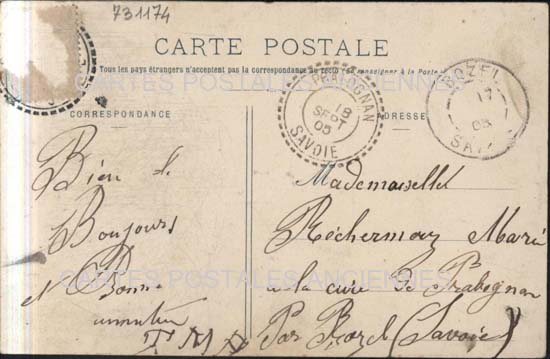 731174
CARTE POSTALE
Tous les pays étrangers n'acceptent pas la correspondance au recto (se renseigner à la Poste)
CARTES POSTALES ANCIENNES
CORRESPONDANCE
ADRESSE
18
SEPT
05
SAVOIE
BOZEL
17
05
Bien le
Bonjours
et Bonne
Mademoiselle
Marie
à la cure de Prabognan
Par Bozel (Savoie)
CARTES POSTALES ANCIENNES